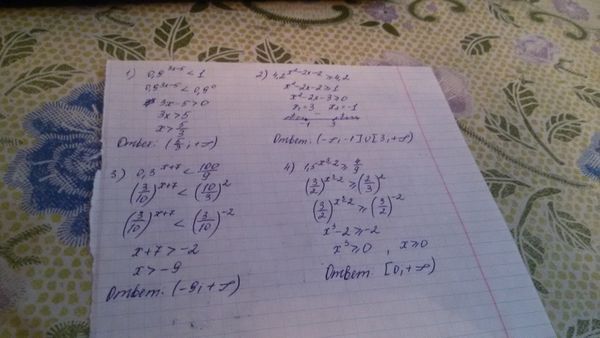 1) 0,9^(3x-5) < 1
0,9^(3x-5) < 0,9^0
3x-5>0
3x>5
x > 5/3
Ответ: (5/3; +∞)
2) 4,2^(x²-2x-2) ≥ 4,2
x²-2x-2 ≥ 1
x²-2x-3 ≥ 0
x₁=3 x₂=-1
-1 3
Ответ: (-∞; -1] ∪ [3; +∞)
3) 0,3^(x+7) < 100/9
(3/10)^(x+7) < (10/3)^2
(3/10)^(x+7) < (3/10)^-2
x+7 > -2
x > -9
Ответ: (-9; +∞)
4) 1,5^(x³-2) ≥ 4/9
(3/2)^(x³-2) ≥ (2/3)^2
(3/2)^(x³-2) ≥ (3/2)^-2
x³-2 ≥ -2
x³ ≥ 0, x ≥ 0
Ответ: [0; +∞)